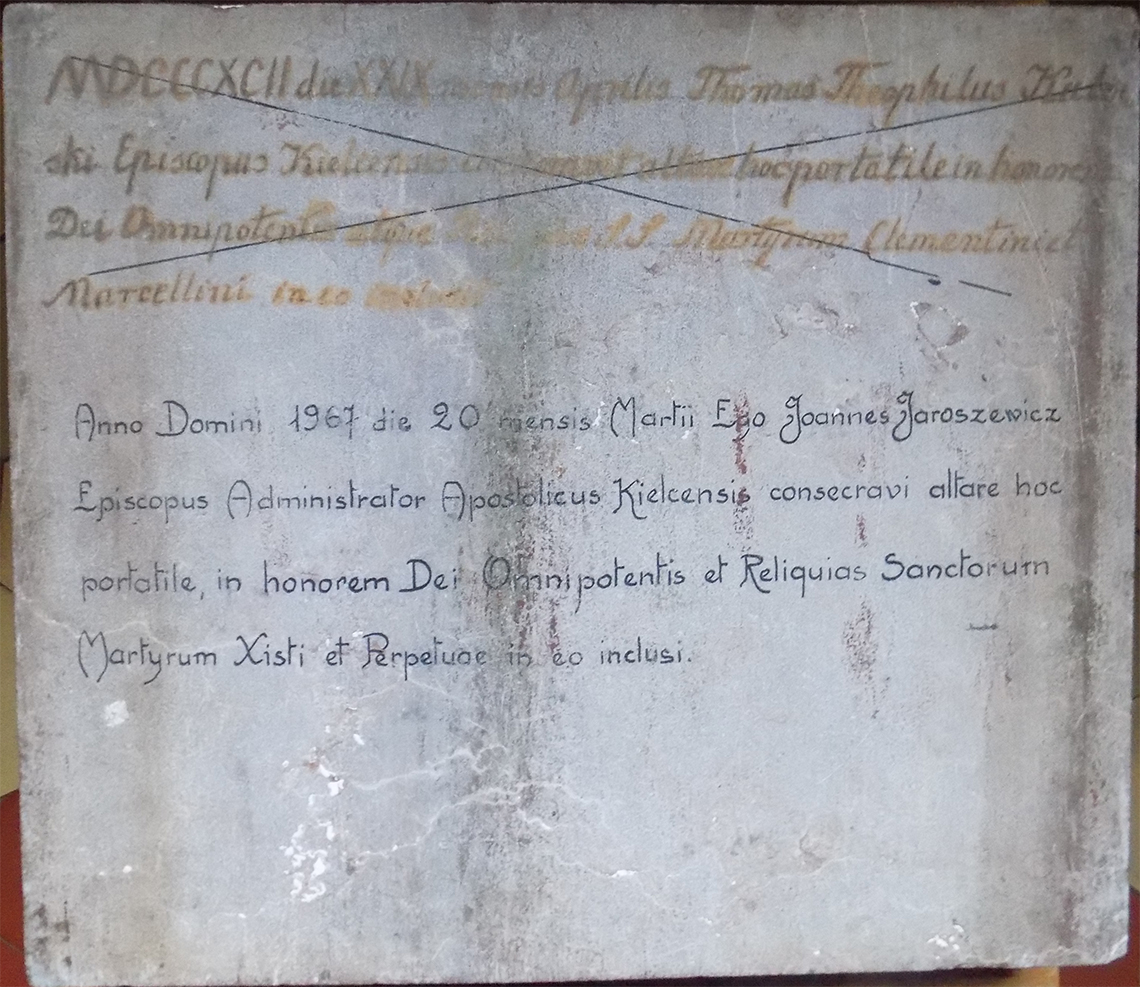 MDCCCXCII die XXIX mensis Aprilis Thomas Theophilus
ski Episcopus Kielcensis altare hoc portatile in honorem
Dei Omnipotentis atque S.S. Martyrum Clementini et
Marcellini in eo
Anno Domini 1967 die 20 mensis Martii Ego Joannes Jaroszewicz
Episcopus Administrator Apostolicus Kielcensis consecravi altare hoc
portatile, in honorem Dei Omnipotentis et Reliquias Sanctorum
Martyrum Xisti et Perpetuae in eo inclusi.